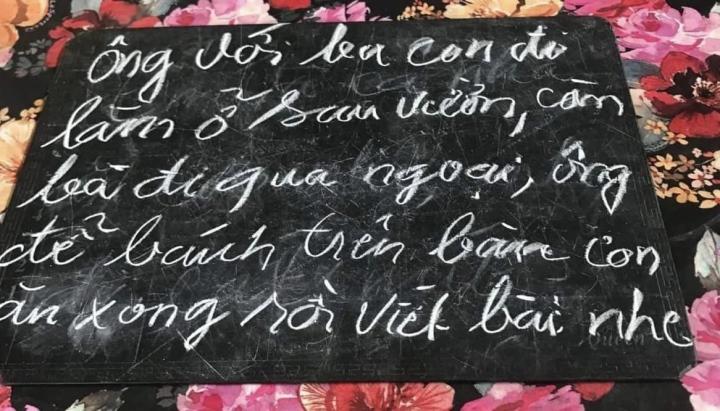 Ông với ba con đi
làm ở sau vườn, còn
bà đi qua ngoại, ông
để bánh trên bàn con
ăn xong rồi viết bài nhe